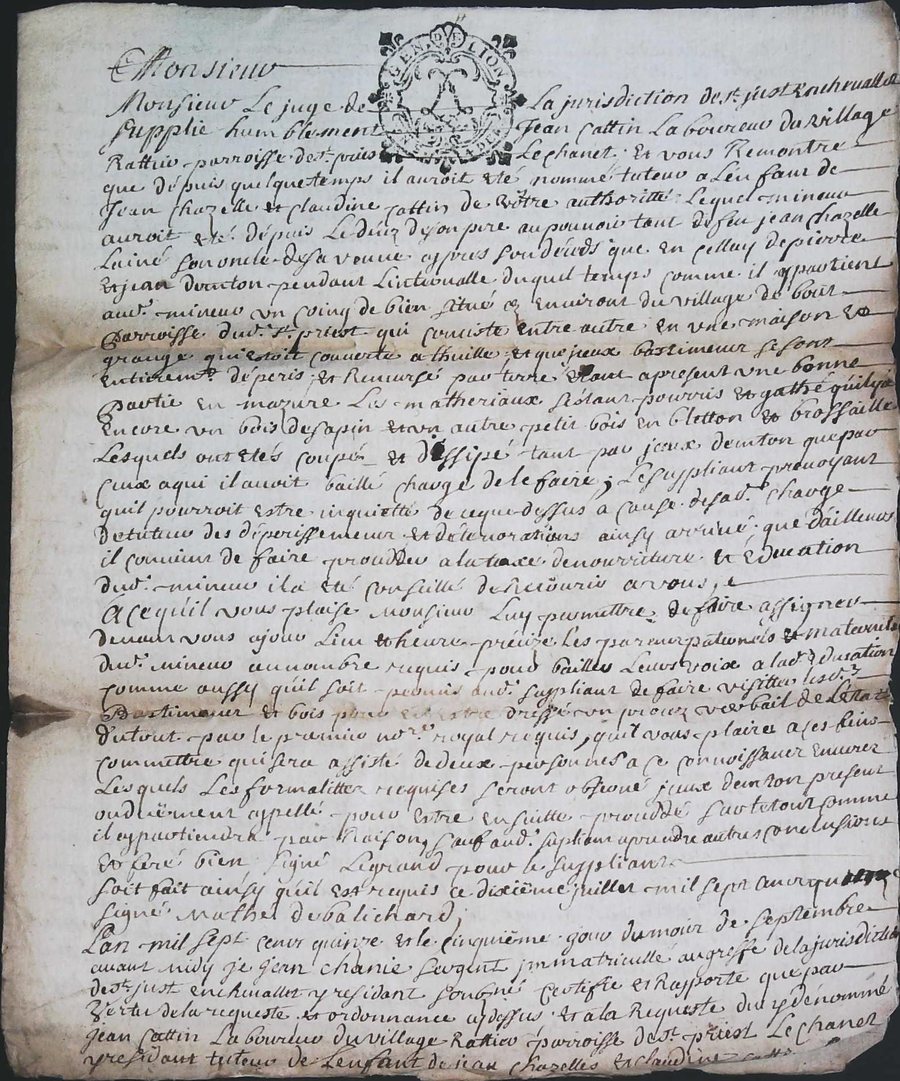 Monsieur
GEN DE LION
Monsieur Le juge de La jurisdiction de st just Enchevallet
supplie humblement Jean Cattin Laboureur du village
Rattier parroisse de st priest Le chanet Et vous Remontre
que dépuis quelque temps il auroit eté nommé tuteur a Lenfant de
Jean Chazelle et Claudine Cattin de vôtre authorité Lequel mineur
auroit eté dépuis Le decez de son pere au pouvoir tant de feu jean chazelle
Lainé son oncle que en celluy de pierre
Et jean donton pendant Linterualle duquel temps comme il appartient
aud. mineur un coing de bien situé Environt du village de bout
parroisse dud. st. priest qui consiste Entre autre En une maison Et
grange qui estoit couverte a thuille, et que jceux bastimens se sont
Entierem.t déperis et Renversé par terre Estant apresent une bonne
partie En mazure Les matheriaux sestant pourris et gathé quil y a
Encore un bois de sapin et un autre petit bois En bletton Et brossaille
Lesquels ont etés coupé Et dissipé tant par jceux donton que par
Ceux a qui il auoit baillé charge de le faire, Le suppliant preuoyant
quil pourroit Estre inquietté de ce que dessus a cause de sad. charge
De tuteur des dépérissemens et déteriorations ainsy arriué que dailleurs
il conuient de faire procedder a la taxe de nourriture Et Education
dud. mineur il a eté conseillé de Recourir a vous,
Ace quil vous plaise Monsieur Luy permettre de faire assigner
deuant vous a jour Lieu et heure precize Les parens paternels et maternels
dud. mineur au nombre requis pour bailler Leurs voix a lad. Education
comme aussy quil soit permis aud. suppliant de faire visitter lesd.
Bastimens et bois pour en estre dressé un procez verbail de Lestat
du tout par le premier no.re royal requis, quil vous plaira a ces fins
committre qui sera assisté de deux personnes a ce connoissance enuers
Lesquels Les formalittes requises seront obserué jceux donton present
ou duëment appellé pour Estre En suitte proceddé sur le tout comme
il appartiendra par Raison, sauf aud. supliant aprendre autres conclusions
Et feré bien signé Legrand pour le suppliant
soit fait ainsy quil Est requis ce dixiême juillet mil sept cent quinze
signé Mathei de balichard,
Lan mil sept cens quinze et le cinquiême jour du mois de septembre
auant midy je Jean Chanie sergent jmmatriculé au greffe de la jurisdiction
de st just Encheuallet y residant soubné Certifie et Rapporte que par
Vertu de la requeste et ordonnance cy dessus et a la Requeste du y dénommé
jean Cattin Laboureur du village Rattier parroisse de st. priest Le chanet
y residant tuteur de Lenfant de jean chazelles Et Claudine